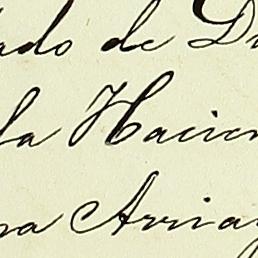 ado de D
la Hacien
na Arria